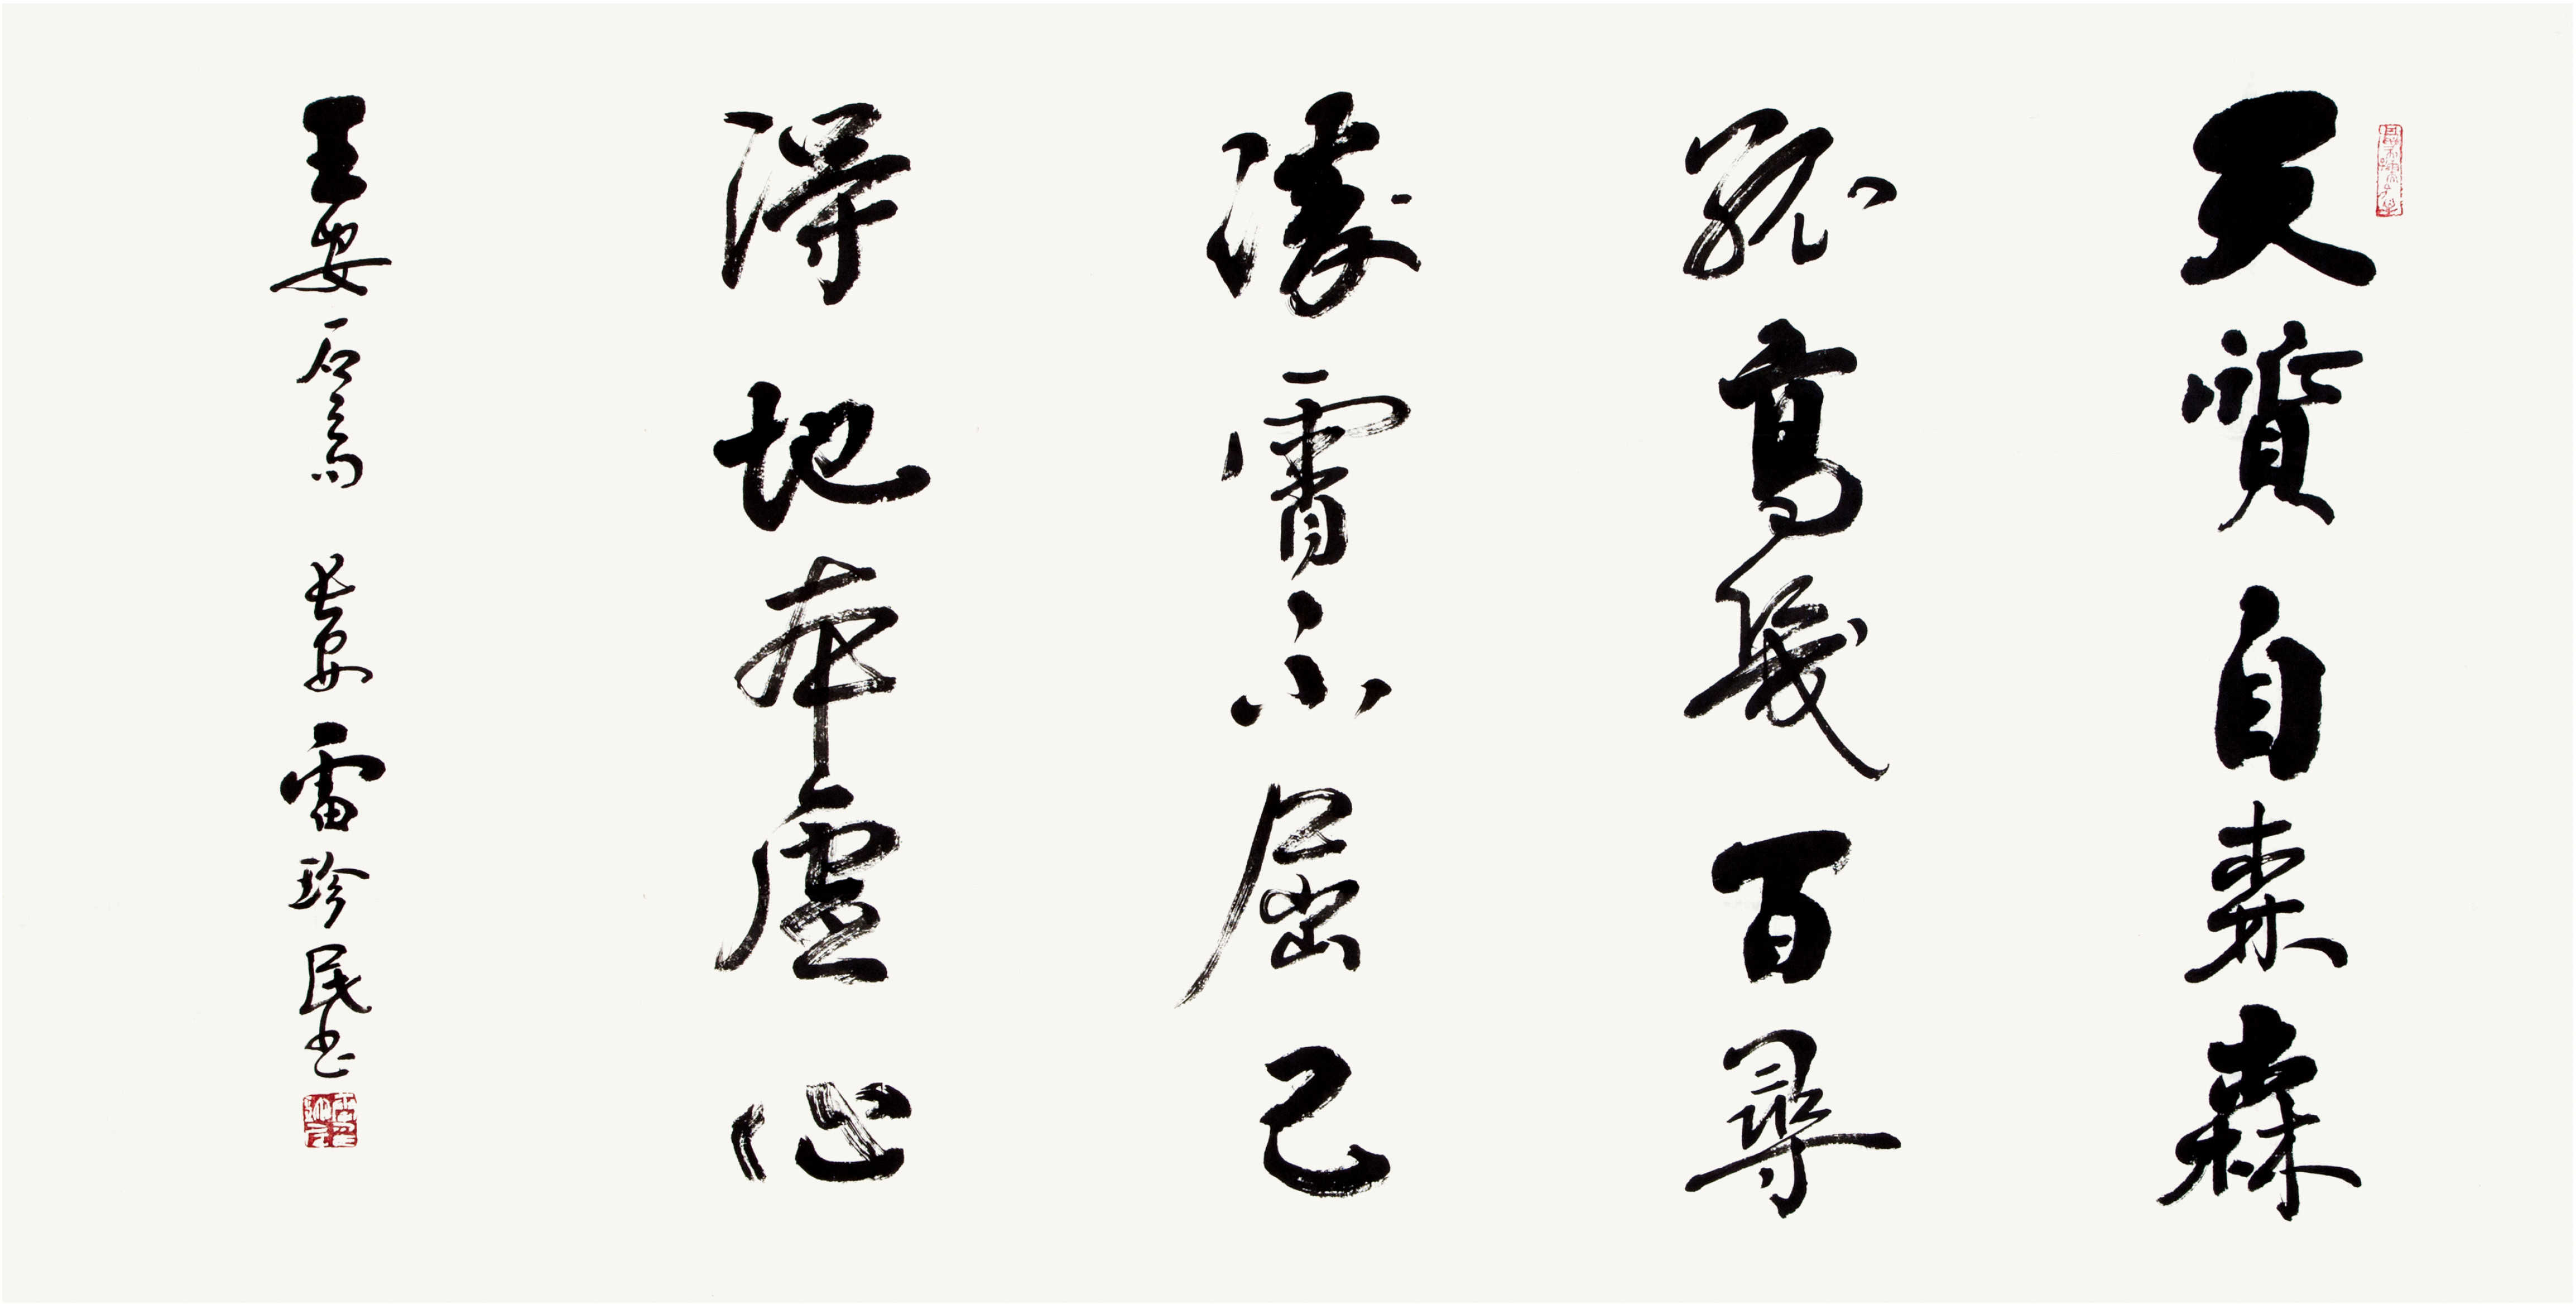 天質自森森
孤高幾百尋
凌霄不屈己
得地本虛心
王安石 長安雷珍民书